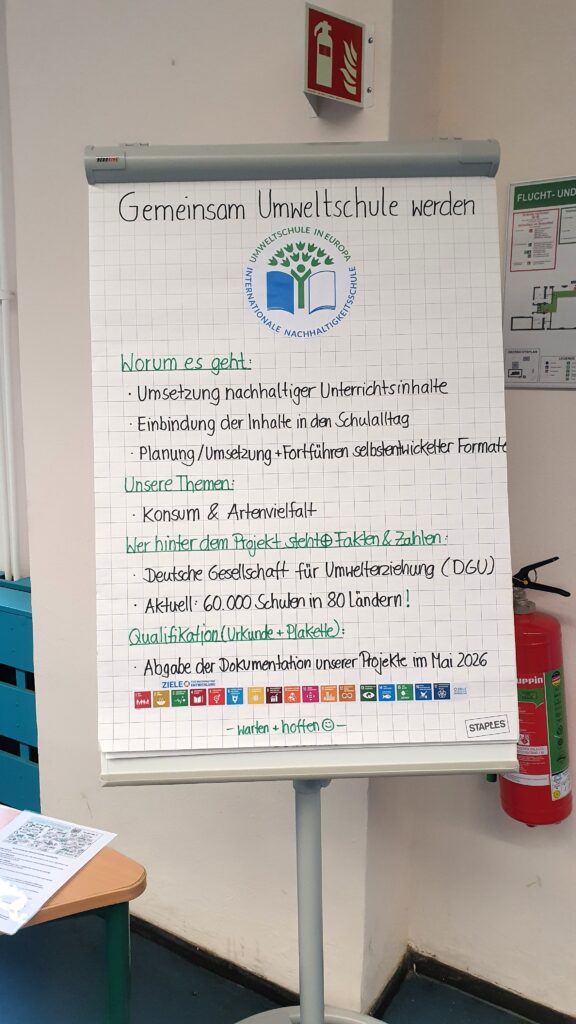 Gemeinsam Umweltschule werden
UMWELTSCHULE IN EUROPA
INTERNATIONALE NACHHALTIGKEITSSCHULE
Worum es geht:
· Umsetzung nachhaltiger Unterrichtsinhalte
· Einbindung der Inhalte in den Schulalltag
· Planung/Umsetzung + Fortführen selbstentwickelter Formate
Unsere Themen:
· Konsum & Artenvielfalt
Wer hinter dem Projekt steht + Fakten & Zahlen:
· Deutsche Gesellschaft für Umwelterziehung (DGU)
· Aktuell: 60.000 Schulen in 80 Ländern!
Qualifikation (Urkunde + Plakette):
· Abgabe der Dokumentation unserer Projekte im Mai 2026
ZIELE
- warten + hoffen ☺ -
STAPLES
FLUCHT- UND
uppin